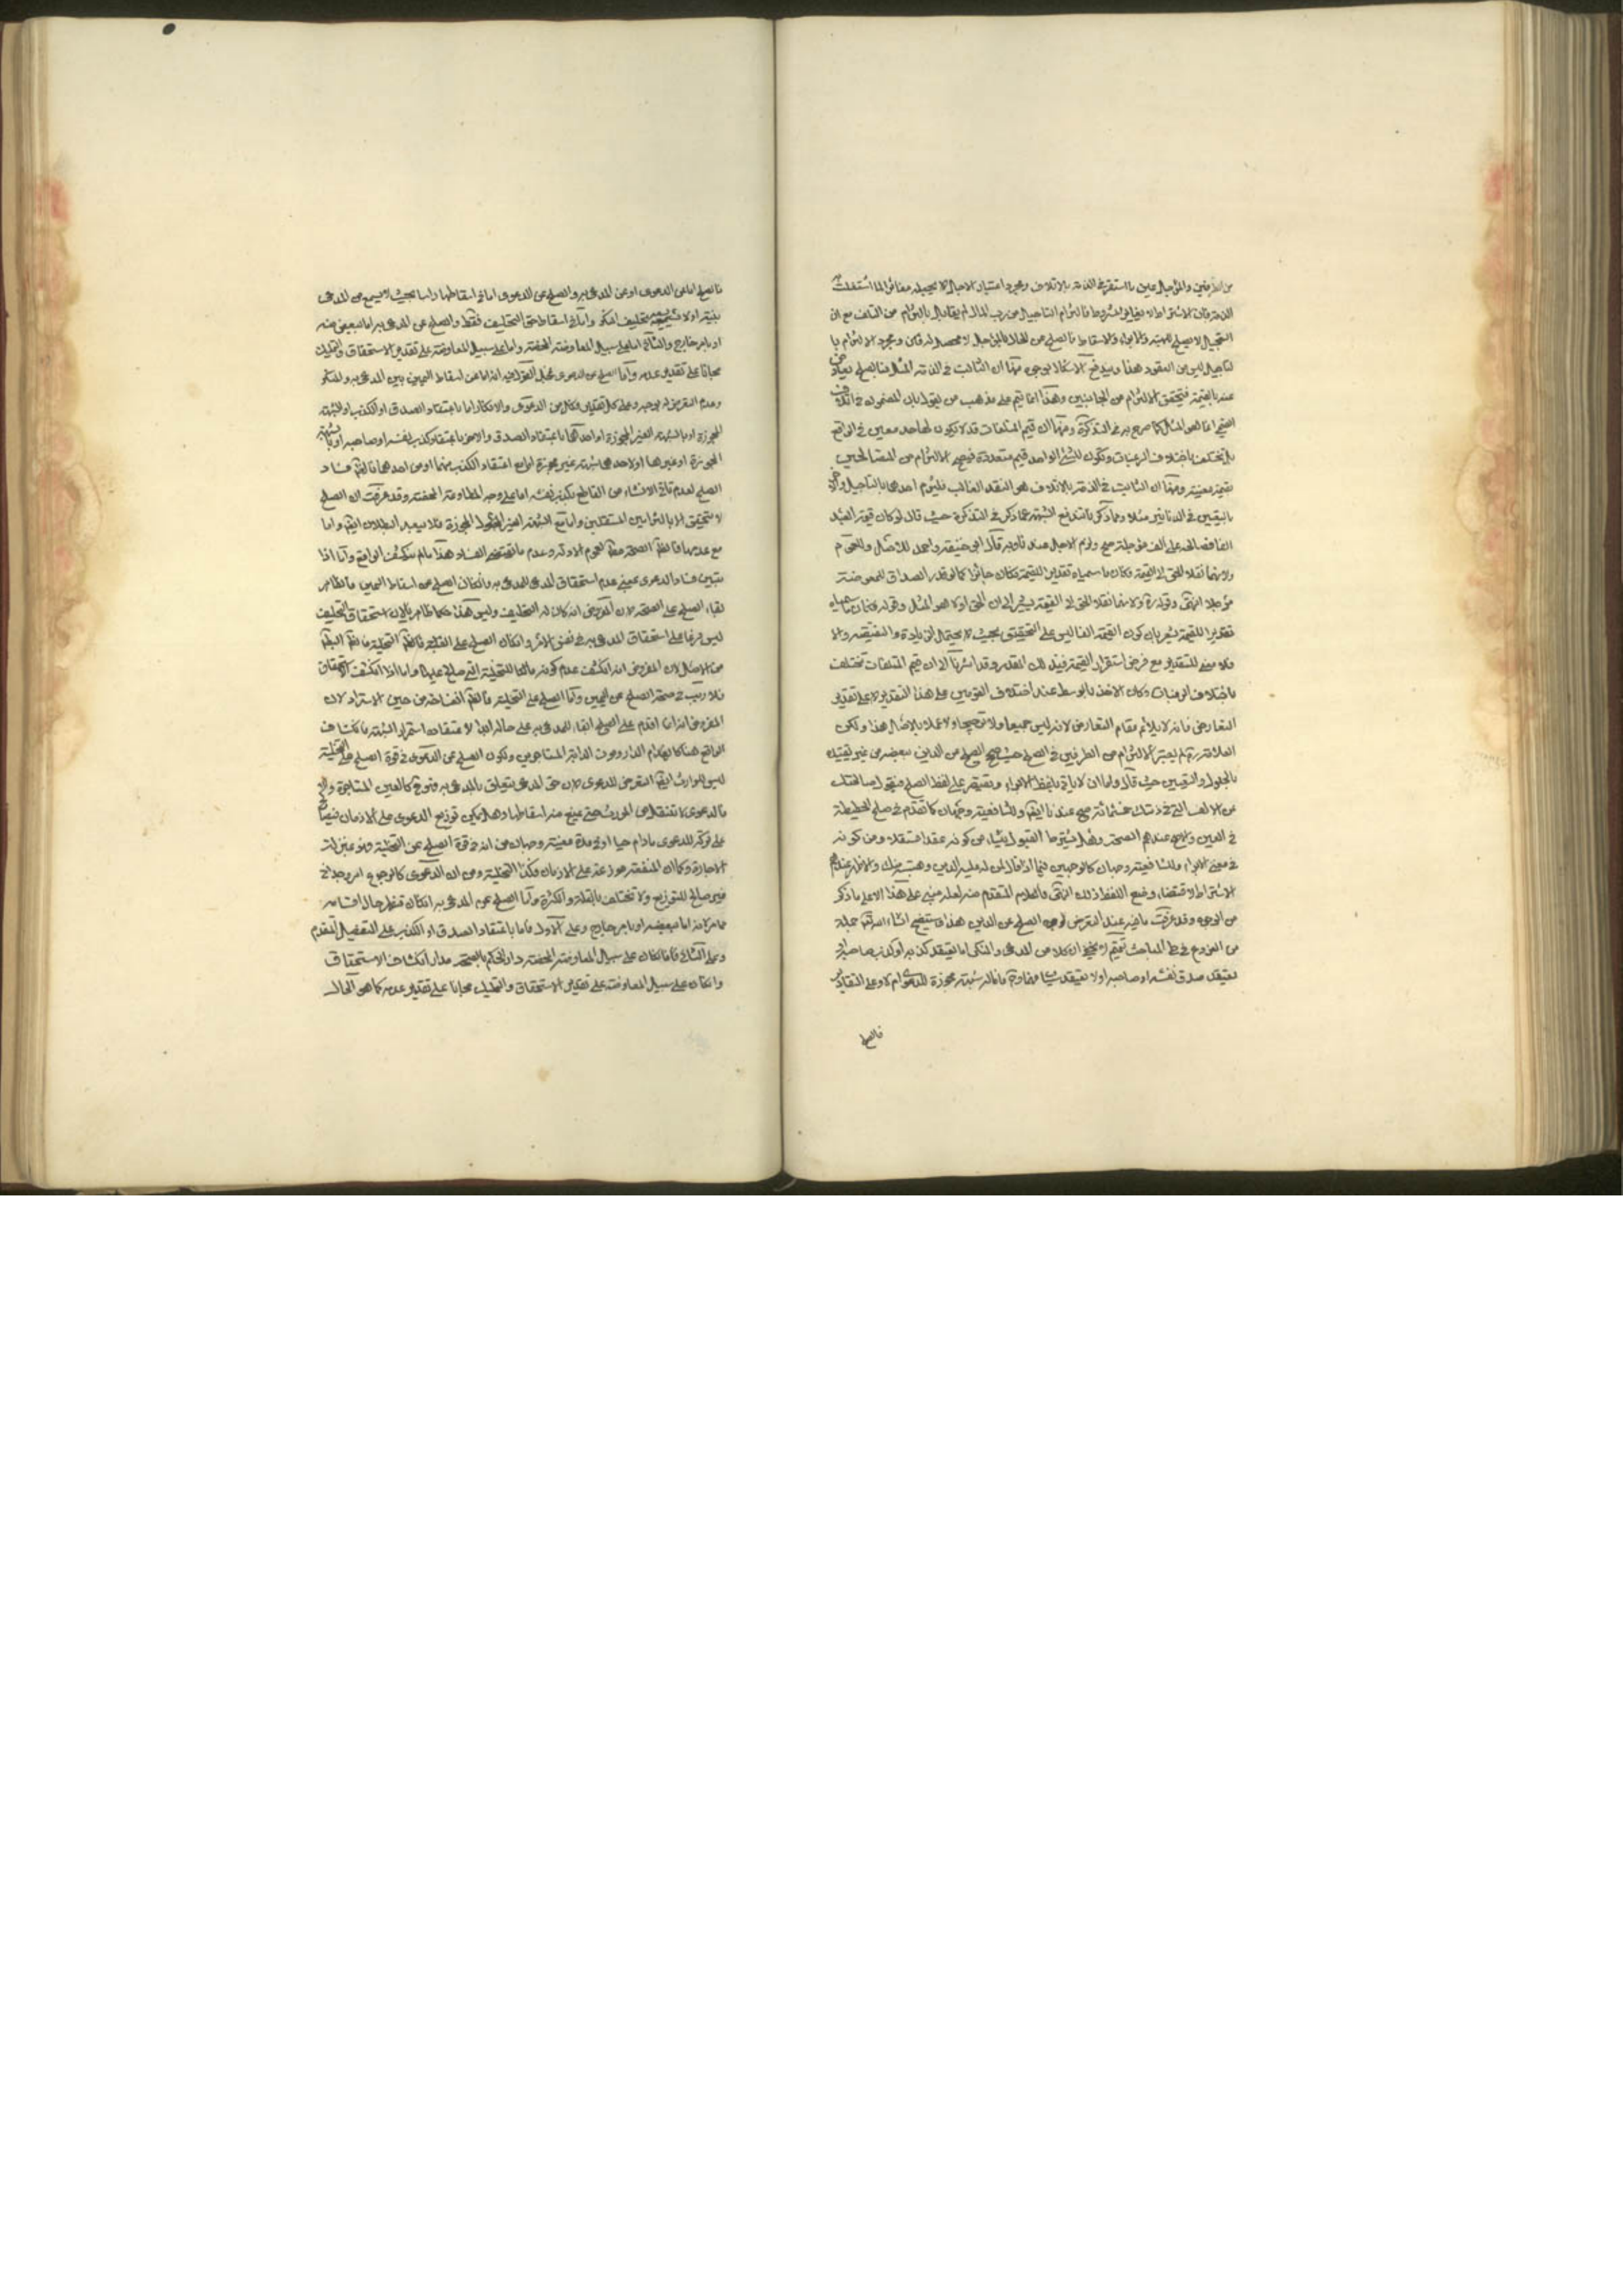 من الطرفين والمؤجل عين ما استقر في الذمة بالاتلاف ومجرد اعتبار الاجل لا يجعله مغايرا لما اشتغلت
الذمة فان الاشتراط لا يغاير المشروط فالتزام التاجيل من رب المال لم يقابل بالتزام من المتلف مع ان
التعجيل لا يصلح للهبة والابراء والاسقاط فالصلح عن الحال بالمؤجل لا محصل له فان مجرد الالتزام با
لتاجيل ليس من العقود هذا ويندفع الاشكال بوجوه منها ان الثابت في الذمة المثل فالصلح
عنه بالقيمة فيتحقق الالتزام من الجانبين وهذا انما يتم على مذهب من يقول بان المضمون في اتلاف
القيمي انما هو المثل كما صرح به في التذكرة ومنها ان قيم المتلفات قد لا يكون لها حد معين في الواقع
بل يختلف باختلاف الرغبات ويكون للشئ الواحد قيم متعددة فيصح الالتزام من المتصالحين
بقيمة معينة ومنها ان الثابت في الذمة بالاتلاف هو النقد الغالب فيلتزم احدهما بالتاجيل والاخر
بالتعيين في الدنانير مثلا وبما ذكرنا تندفع الشبهة عما ذكره في التذكرة حيث قال لو كان قيمة العبد
الفا فصالحه على الف مؤجلة صح ولزم الاجل عندنا وبه قال ابو حنيفة واحمد للاصل والعموم
ولانهما نقلا الحق الى القيمة فكان ما سمياه تقديرا للقيمة فكان جائزا كما لو قدر الصداق للمعوضة
مؤجلا انتهى وقوله ره ولانهما نقلا الحق الى القيمة يشير الى ان الحق اولا هو المثل وقوله فكان ما سمياه
تقديرا للقيمة يشير بان كون القيمة الفا ليس على التحقيق بحيث لا يحتمل الزيادة والنقيصة والا
فلا معنى للتقدير مع فرض استقرار القيمة قبل ذلك القدر وقد اشرنا الى ان قيم المتلفات تختلف
باختلاف الرغبات وكان الاخذ بالوسط عند اختلاف المقومين على هذا التقدير لا على تقدير
التعارض فانه لا يلائم مقام التعارض لانه ليس جمعا ولا ترجيحا ولا عملا بالاصل هذا ولكن
العلامة ره لم يعتبر الالتزام من الطرفين في الصلح حيث صحح الصلح عن الدين ببعضه من غير تقييد
بالحلول والتعيين حيث قال ولو اما ان لا ياتي بلفظ الابراء ويقتصر على لفظ الصلح فيقول صالحتك
عن الالف التي في ذمتك على خمسمائة صح عندنا ايضا وللشافعية وجهان كما تقدم في صلح الحطيطة
في العين والاصح عندهم الصحة وهل يشترط القبول ينشأ من كونه عقدا مستقلا ومن كونه
في معنى الابراء وللشافعية وجهان كالوجهين فيما اذا قال لمن له عليه الدين وهبته منك والاظهر عندهم
الاشتراط لاقتضاء وضع اللفظ ذلك انتهى فالكلام المتقدم منه لعله مبني على هذا الا على ما ذكر
من الوجوه وقد عرفت ما فيه عند التعرض لوجه الصلح عن الدين هذا وسيتضح انشاء الله تعالى جملة
من الفروع في طي المباحث تتميم لا يخفى ان كلا من المدعي والمنكر اما يعتقد كذبه او كذب صاحبه او
يعتقد صدق نفسه او صاحبه او لا يعتقد شيئا منها وح فاما له شبهة مجوزة للدعوى ام لا وعلى التقادير
فالصلح
فالصلح اما عن الدعوى او عن المدعى به والصلح عن الدعوى اما في اسقاطها راسا بحيث لا يسمع من المدعي
بينة اولا يستحق تحليف المنكر واما في اسقاط حق التحليف فقط والصلح عن المدعى به اما ببعض منه
او بامر خارج والثاني اما على سبيل المعاوضة المحضة واما على سبيل المعاوضة على تقدير الاستحقاق والتمليك
مجانا على تقدير عدمه واما الصلح عن الدعوى
وعدم التعرض له بوجه وعلى كل تقدير فكل من الدعوى والانكار اما باعتقاد الصدق او الكذب او الشبهة
المجوزة او بالشبهة الغير المجوزة او احدهما باعتقاد الصدق والاخر باعتقاد كذب نفسه او صاحبه او بالشبهة
المجوزة او غيرها او لاحدهما شبهة غير مجوزة اما مع اعتقاد الكذب منهما او من احدهما فالظاهر فساد
الصلح لعدم تاتي الانشاء من القاطع بكذب نفسه اما على وجه المعاوضة المحضة وقد عرفت ان الصلح
لا يتحقق الا بالتزامين مستقلين واما مع الشبهة الغير المجوزة فلا يبعد البطلان ايضا واما
مع عدمها فالظاهر الصحة لعموم الادلة وعدم ما يقتضي الفساد هذا ما لم ينكشف الواقع واما اذا
تبين فساد الدعوى بمعنى عدم استحقاق المدعي للمدعى به فان كان الصلح عن اسقاط اليمين فالظاهر
بقاء الصلح على الصحة لان المفروض انه كان له التحليف وليس هذا حكما ظاهريا لان استحقاق التحليف
ليس فرعا على استحقاق المدعى به في نفس الامر وان كان الصلح على التخلية فالظاهر البطلان
من الاصل لان المفروض انه انكشف عدم كونه مالكا للتخلية التي صالح عليها واما اذا انكشف الاستحقاق
فلا ريب في صحة الصلح عن اليمين واما الصلح على التخلية فالظاهر انفساخه من حين الاسترداد لان
المفروض انه انما اقدم على الصلح ابقاء للمدعى به على حاله
الواقع هنا كانهدام الدار وموت الدابة المستاجرين ولكون الصلح عن الدعوى في قوة الصلح على التخلية
ليس للوارث ايضا التعرض للدعوى لان حق المدعي يتعلق بالمدعى به فهو كالعين المستاجرة
فالدعوى لا تنتقل من المورث حتى يمنع منه اسقاطها وهل يمكن توزيع الدعوى على الازمان فيصالح
على تركه للدعوى ما دام حيا او في مدة معينة وجهان من انه في قوة الصلح عن التخلية وهو بمنزلة
الاجارة وكما ان المنفعة موزعة على الازمان فكذا التخلية ومن ان الدعوى كالرجوع امر وحداني
غير صالح للتوزيع ولا تختلف بالقلة والكثرة واما الصلح عن المدعى به
مما مر لانه اما ببعضه او بامر خارج وعلى الاول فاما باعتقاد الصدق او الكذب على التفصيل المتقدم
وعلى الثاني فاما كان على سبيل المعاوضة المحضة دار الحكم بالصحة مدار انكشاف الاستحقاق
وان كان على سبيل المعاوضة على تقدير الاستحقاق والتمليك مجانا على تقدير عدمه كما هو الحال